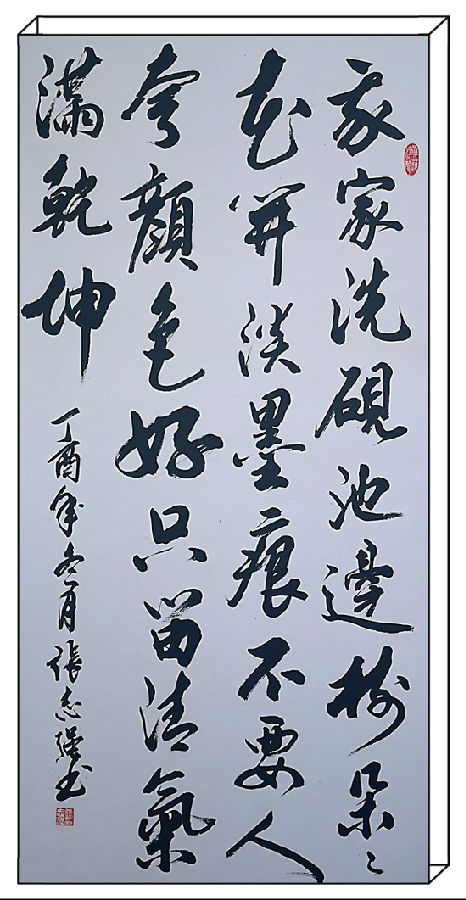 我家洗硯池邊樹朵々
花開淡墨痕不要人
夸顏色好只留清氣
滿乾坤
丁酉年冬月張志強书